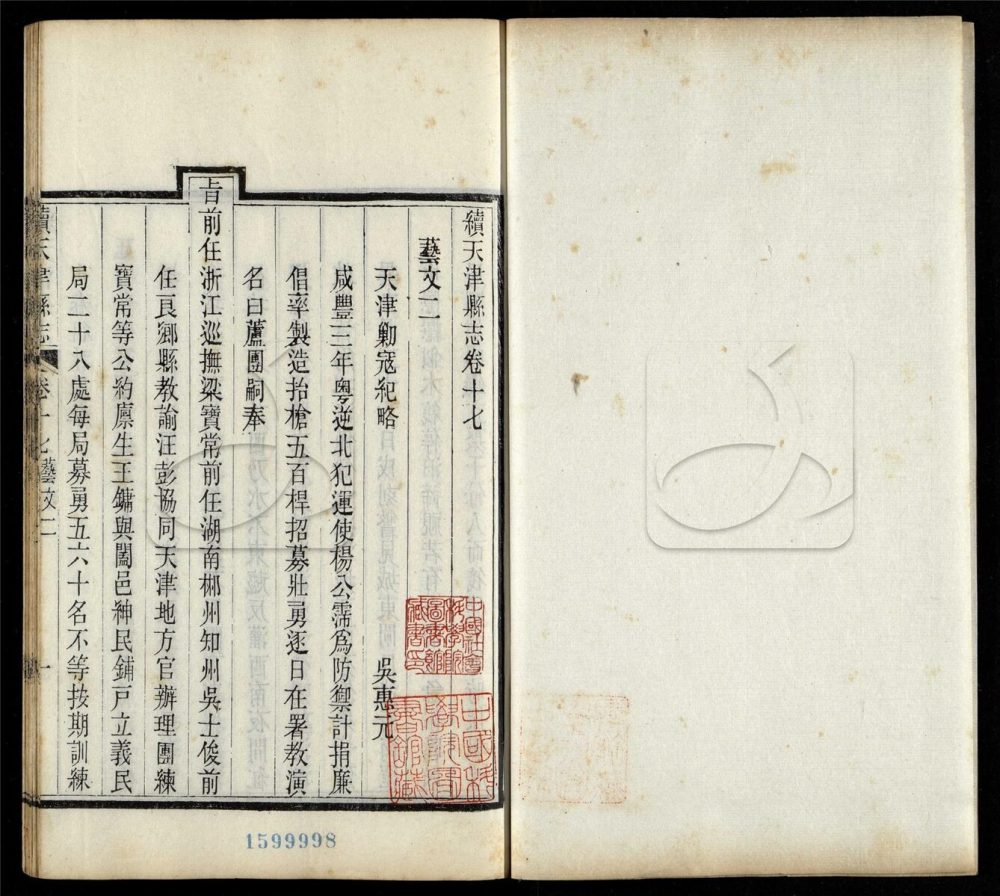 續天津縣志卷十七
藝文二
天津勦寇紀略 吳惠元
咸豐三年粵逆北犯運使楊公霈爲防禦計捐廉
倡率製造抬槍五百桿招募壯勇逐日在署教演
名曰蘆團嗣奉
旨前任浙江巡撫梁寶常前任湖南郴州知州吳士俊前
任良鄉縣教諭汪彭協同天津地方官辦理團練
寶常等公約廩生王鏞與闔邑紳民鋪戶立義民
局二十八處每局募勇五六十名不等按期訓練
續天津縣志 卷十七 藝文二 一
中國社會
科學院
圖書館
藏書印
中國科
學院圖
書館藏
1599998